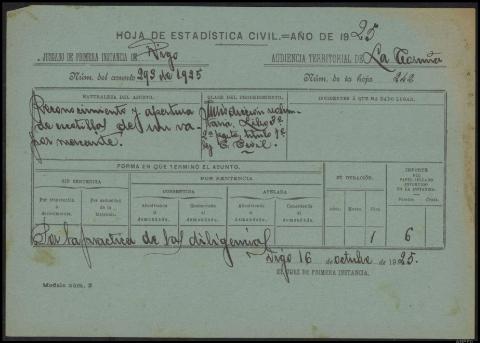 HOJA DE ESTADÍSTICA CIVIL.=AÑO DE 1925
JUZGADO DE PRIMERA INSTANCIA DE Vigo
AUDIENCIA TERRITORIAL DE La Coruña
Núm. del asunto 293 de 1925
Núm. de la hoja 242
NATURALEZA DEL ASUNTO.
CLASE DEL PROCEDIMIENTO.
INCIDENTES Á QUE HA DADO LUGAR.
Reconocimiento y apertura
de escotillas de un va-
por mercante.
Jurisdicción volun-
taria, Libro 3º
2ª parte, título 1º
ley E. Civil
FORMA EN QUE TERMINÓ EL ASUNTO.
SIN SENTENCIA
POR SENTENCIA
SU DURACIÓN.
IMPORTE
DEL
PAPEL SELLADO
INVERTIDO
EN LA INSTANCIA.
CONSENTIDA
APELADA
Absolviendo
al
demandado.
Condenando
al
demandado.
Absolviendo
al
demandado.
Condenando
al
demandado.
Años.
Meses.
Días.
Pesetas
Cénts.
Por la práctica de las diligencias
1
6
Vigo 16 de octubre de 1925.
EL JUEZ DE PRIMERA INSTANCIA,
Modelo núm. 2